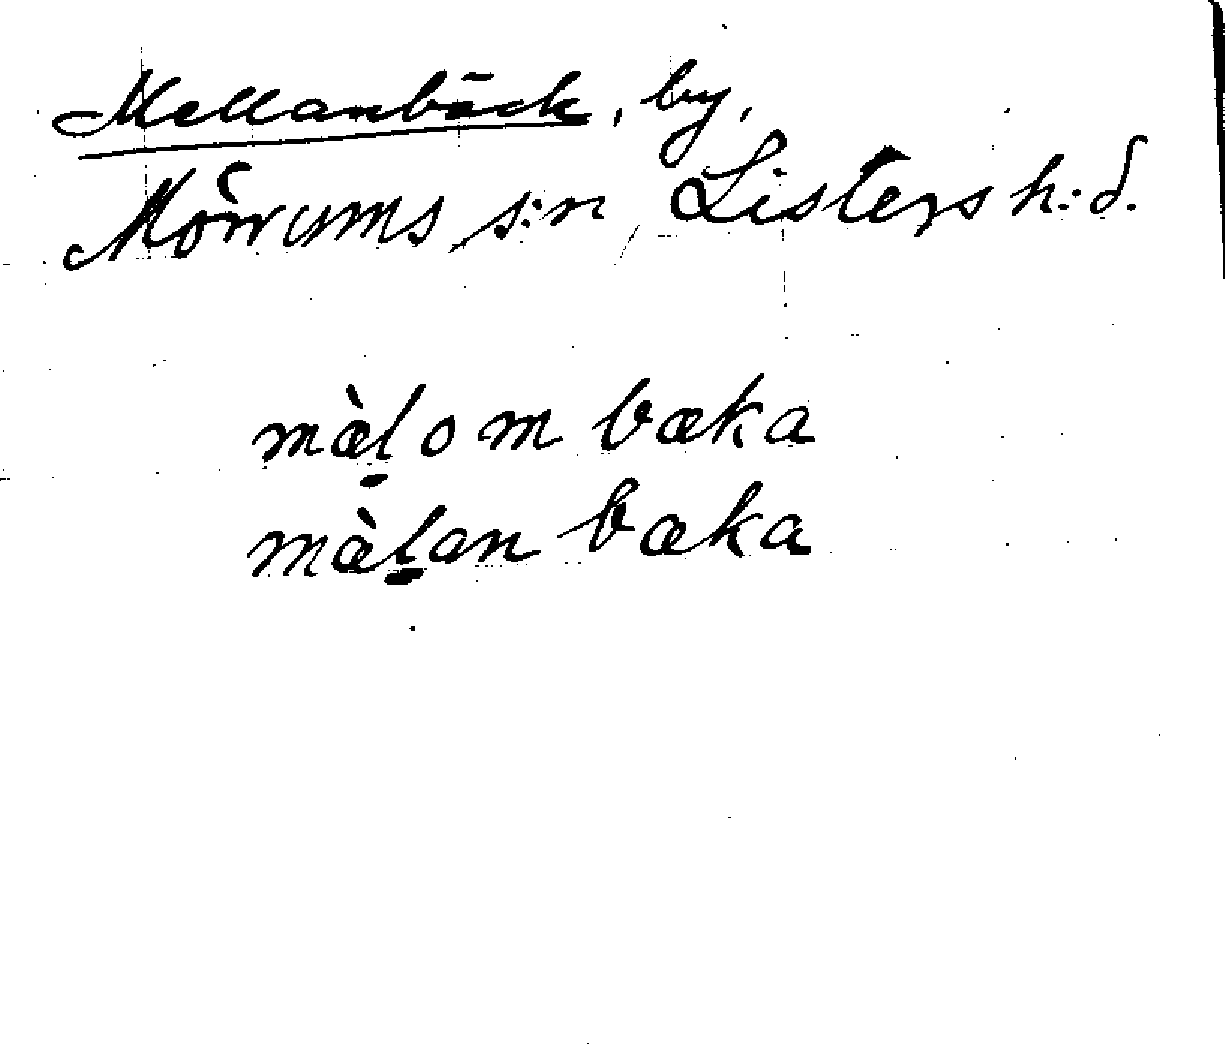 Mellanbäck, by,
Mörrums s:n, Listers h:d.
mæ̀l̠om bæka
mæ̀l̠an bæka